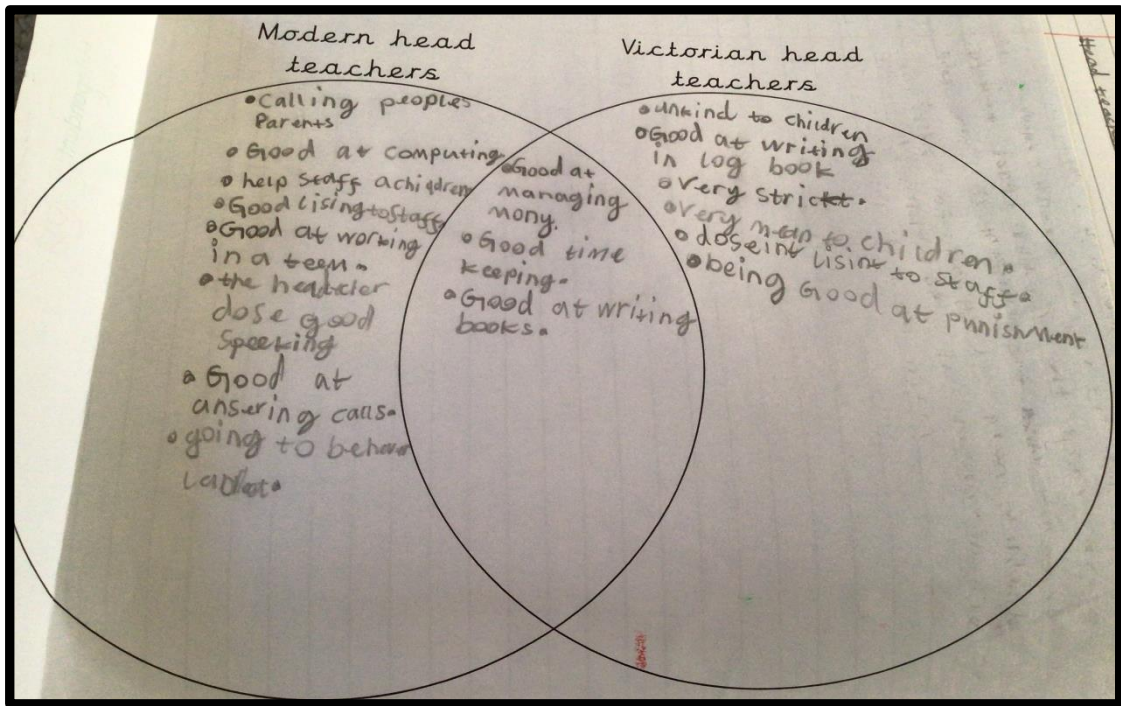 Modern head
teachers
• Calling peoples
Parents
• Good at computing
• help staff achildren
• Good lising to staff
• Good at working
in a teem.
• the
dose good
Speeking
• Good at
ansering calls.
• going to
Good at
managing
mony.
• Good time
keeping.
• Good at writing
books.
Victorian head
teachers
• unkind to children
• Good at writing
in log book
• very strickt.
• very mean to children.
• doseint lisint to staff.
• being Good at punishment
Head